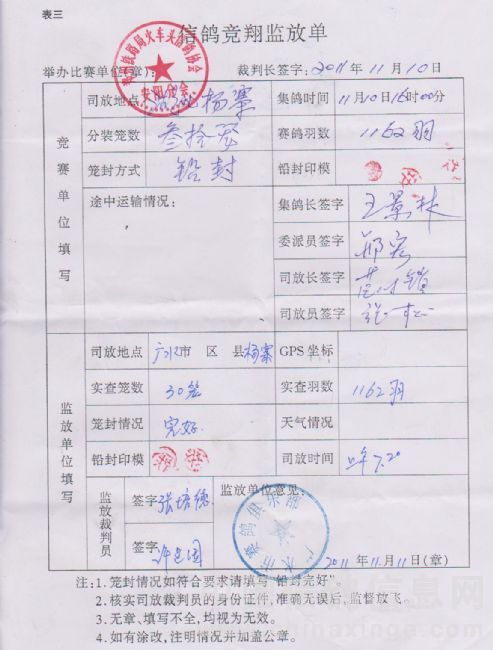 表三
信鸽竞翔监放单
举办比赛单位(章): 裁判长签字: 2011年11月10日
火车头信鸽协会
安阳分会
竞赛单位填写
司放地点 杨寨 集鸽时间 11月10日16时00分
分装笼数 赛鸽羽数 1162羽
笼封方式 铅封 铅封印模
途中运输情况: 集鸽长签字 王景林
委派员签字
司放长签字
司放员签字
监放单位填写
司放地点 广水市 区 县杨寨 GPS坐标
实查笼数 30笼 实查羽数 1162羽
笼封情况 完好. 天气情况
铅封印模 司放时间 7.20
监放裁判员 签字 张培德 监放单位意见:
签字
广水市 鸽俱乐部
2011年11月11日(章)
注:1.笼封情况如符合要求请填写"铅封完好"。
2.核实司放裁判员的身份证件,准确无误后,监督放飞。
3.无章、填写不全,均视为无效。
4.如有涂改,注明情况并加盖公章。